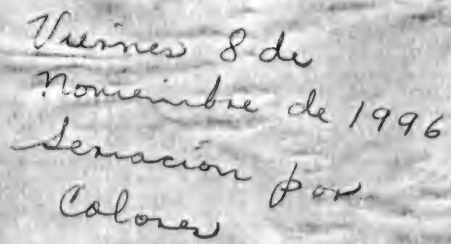 Viernes 8 de
noviembre de 1996
Seriación por
Colores